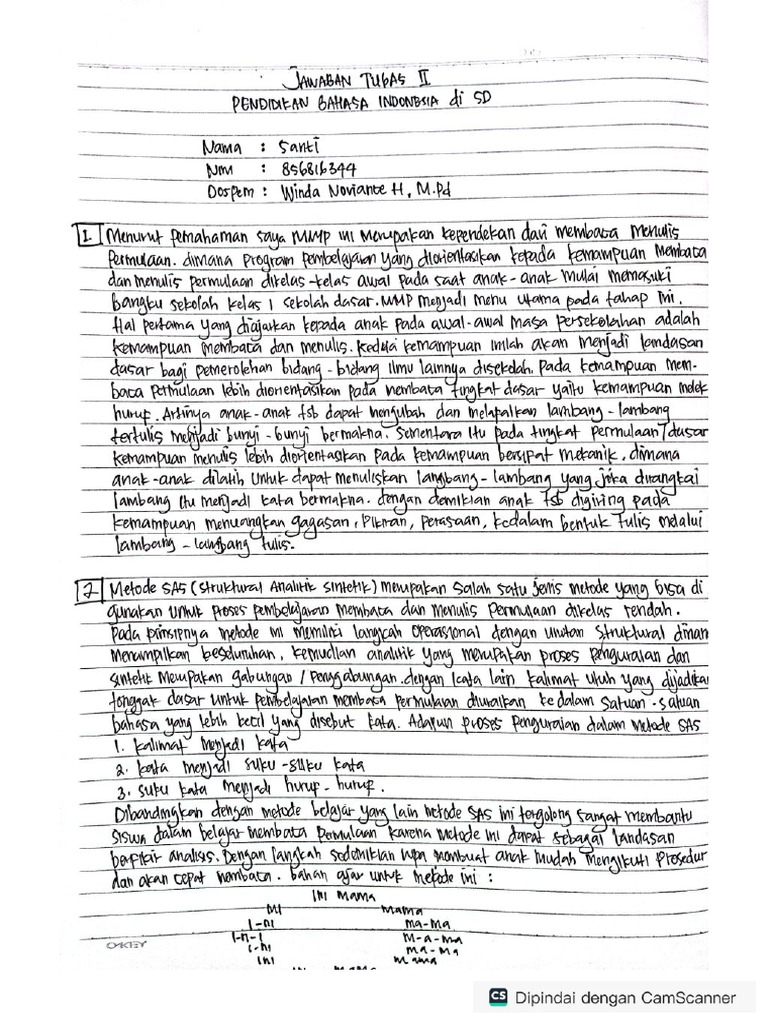 JAWABAN TUGAS II
PENDIDIKAN BAHASA INDONESIA di SD
Nama : Santi
Nim : 856816344
Dospem : Winda Noviante H, M.Pd
1. Menurut Pemahaman saya MMP ini Merupakan kependekan dari membaca Menulis
Permulaan. dimana program Pembelajaran yang diorientasikan kepada kemampuan Membaca
dan menulis permulaan dikelas-kelas awal pada saat anak-anak mulai memasuki
bangku sekolah kelas 1 sekolah dasar. MMP menjadi menu utama pada tahap ini.
Hal pertama yang diajarkan kepada anak pada awal-awal masa persekolahan adalah
kemampuan membaca dan menulis. Kedua kemampuan inilah akan menjadi landasan
dasar bagi pemerolehan bidang-bidang ilmu lainnya disekolah. Pada kemampuan mem-
baca permulaan lebih diorientasikan pada membaca tingkat dasar yaitu kemampuan melek
huruf. Artinya anak-anak tsb dapat mengubah dan melapalkan lambang-lambang
tertulis menjadi bunyi-bunyi bermakna. Sementara itu pada tingkat permulaan/dasar
kemampuan menulis lebih diorientasikan pada kemampuan bersipat mekanik, dimana
anak-anak dilatih untuk dapat menuliskan lambang-lambang yang jika dirangkai
lambang itu menjadi kata bermakna. dengan demikian anak tsb digiring pada
kemampuan menuangkan gagasan, pikiran, perasaan, kedalam bentuk tulis melalui
lambang-lambang tulis.
2 Metode SAS (Struktural Analitik Sintetik) merupakan salah satu jenis metode yang bisa di
gunakan untuk proses pembelajaran membaca dan menulis permulaan dikelas rendah.
Pada prinsipnya metode ini memiliki langkah operasional dengan urutan struktural diman
menampilkan keseluruhan, kemudian analitik yang merupakan proses penguraian dan
sintetik merupakan gabungan / penggabungan. dengan kata lain kalimat utuh yang dijadikan
tonggak dasar untuk pembelajaran membaca permulaan diuraikan kedalam satuan-satuan
bahasa yang lebih kecil yang disebut kata. Adapun proses penguraian dalam metode SAS
1. kalimat menjadi kata
2. kata menjadi suku-suku kata
3. suku kata menjadi hurup-hurup.
Dibandingkan dengan metode belajar yang lain metode SAS ini tergolong sangat membantu
siswa dalam belajar membaca permulaan karena metode ini dapat sebagai landasan
berfikir analisis. Dengan langkah sedemikian rupa membuat anak mudah mengikuti prosedur
dan akan cepat membaca. bahan ajar untuk metode ini :
Ini Mama
Ini Mama
I-ni ma-ma
I-n-i M-a-ma
i-ni ma-ma
Ini Mama
Ini Mama
OKEY
CS Dipindai dengan CamScanner